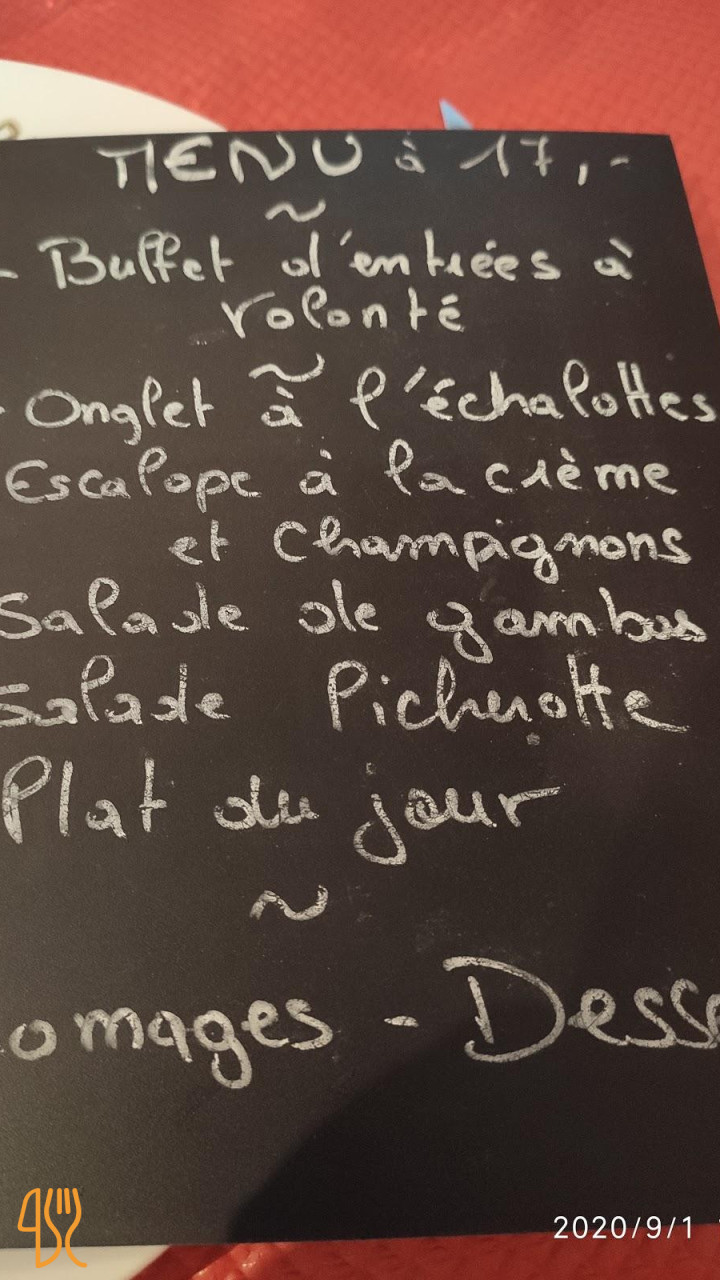 MENU à 17,-
~
- Buffet d'entrées à
volonté
~
- Onglet à l'échalottes
Escalope à la crème
et Champignons
Salade de gambas
Salade Picherotte
Plat du jour
~
omages - Desse
2020/9/1